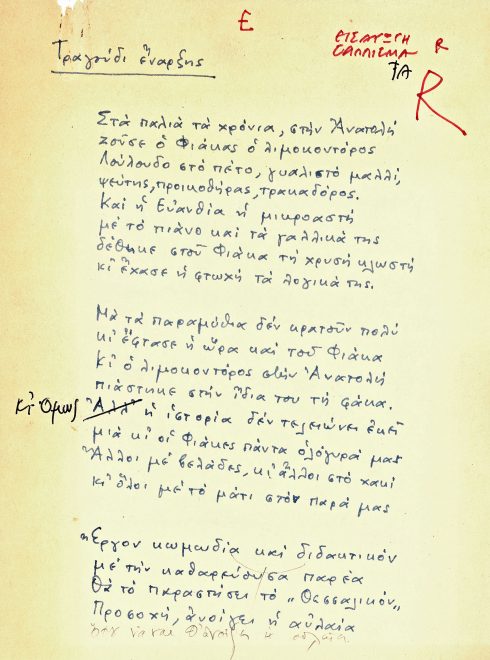 Ε
ΕΙΣΑΓΩΓΗ
ΣΑΛΠΙΣΜΑ
R
ΤΑ
R
Τραγούδι ἔναρξης
Στά παλιά τά χρόνια, στήν Ἀνατολή
ζοῦσε ὁ Φιάκας ὁ λιμοκοντόρος
Λούλουδο στό πέτο, γυαλιστό μαλλί,
ψεύτης, προικοθήρας, τρακαδόρος.
Καί ἡ Εὐανθία ἡ μικροαστή
μέ τό πιάνο καί τά γαλλικά της
δέθηκε στοῦ Φιάκα τή χρυσή κλωστή
κι ἔχασε ἡ φτωχή τά λογικά της.
Μά τά παραμύθια δέν κρατοῦν πολύ
κι ἔφτασε ἡ ὥρα καί τοῦ Φιάκα
Κι ὁ λιμοκοντόρος στήν Ἀνατολή
πιάστηκε στήν ἴδια του τή φάκα.
Κι ὅμως Ἀλλ' ἡ ἱστορία δέν τελειώνει ἐκεῖ
μιά κι οἱ Φιάκες πάντα ὁλόγυρά μας
Ἄλλοι μέ βελάδες, κι ἄλλοι στό χακί
κι ὅλοι μέ τό μάτι στόν παρά μας
Ἔργον κωμωδία καί διδακτικόν
μέ τήν καθαρεύουσα παρέα
Θά τό παραστήσει τό „Θεσσαλικόν„
Προσοχή, ἀνοίγει ἡ αὐλαία